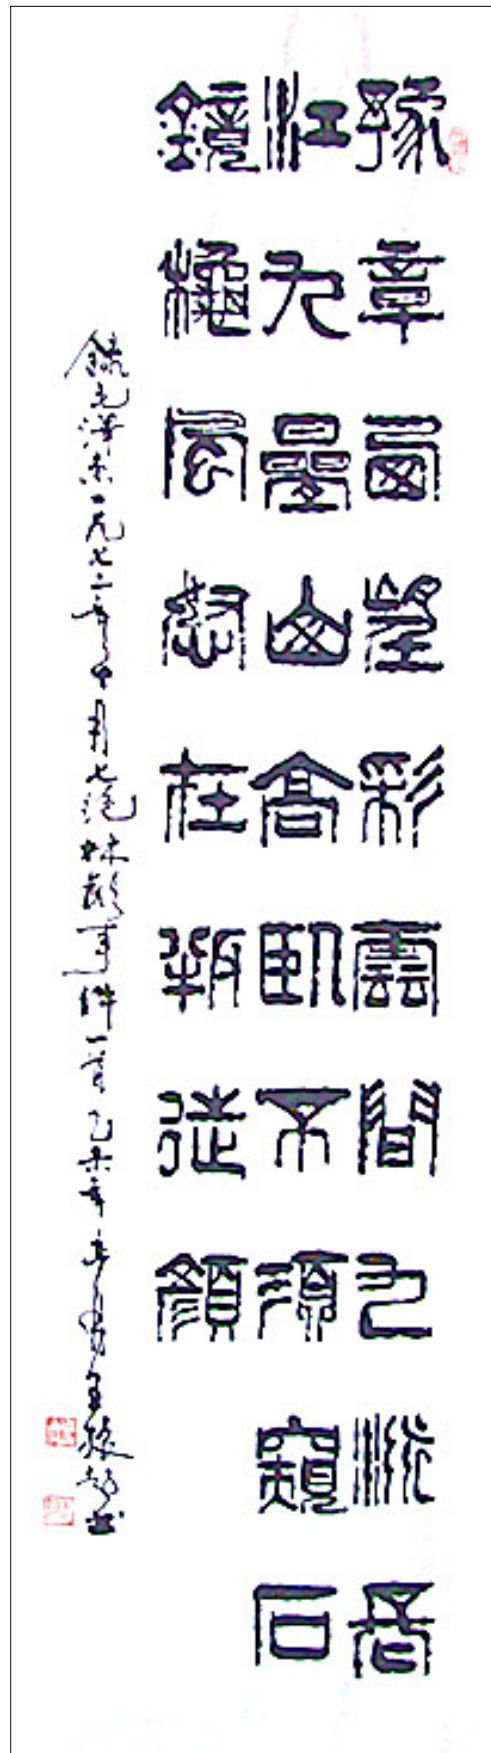 豫章西望彩雲間九派長
江九疊山高臥不須窺石
鏡穐風怒在叛徒顏
錄毛澤东一九七二年十月七绝林彪事件一首乙未年月王振书